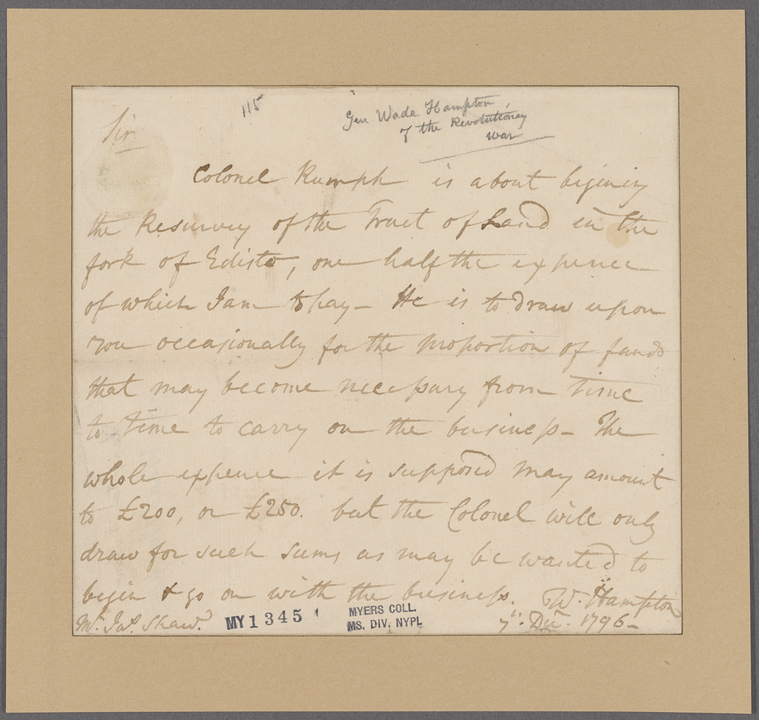 115
Gen Wade Hampton,
of the Revolutionary
War
Sir
Colonel Rumph is about begining
the Resurvey of the Tract of Land in the
fork of Edisto, one half the expence
of which I am to pay - He is to draw upon
you occasionally for the proportion of funds
that may become necessary from time
to time to carry on the business - The
whole expence it is supposed may amount
to £200, or £250. but the Colonel will only
draw for such sums as may be wanted to
begin & go on with the business. W. Hampton
Mr. Jas. Shaw. 7th. Decr. 1796 -
MY1345
MYERS COLL.
MS. DIV. NYPL